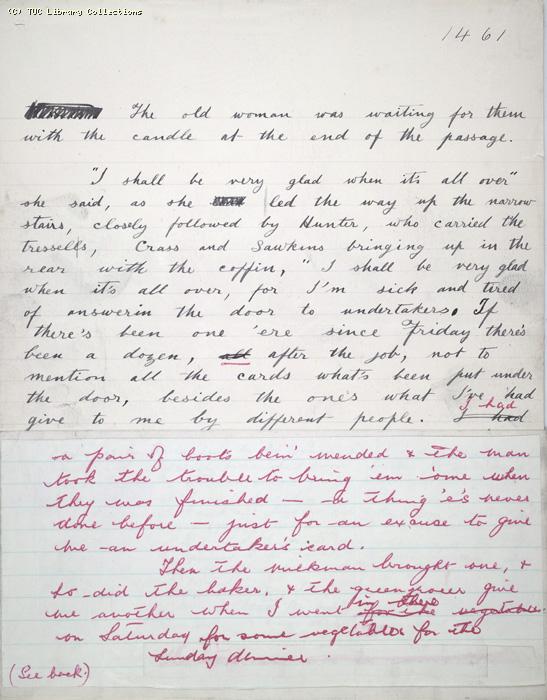 (C) TUC Library Collections
1461
The old woman was waiting for them
with the candle at the end of the passage.
"I shall be very glad when its all over"
she said, as she led the way up the narrow
stairs, closely followed by Hunter, who carried the
tressells, Crass and Sawkins bringing up in the
rear with the coffin, "I shall be very glad
when it's all over, for I'm sick and tired
of answerin the door to undertakers. If
there's been one 'ere since Friday there's
been a dozen, all after the job, not to
mention all the cards what's been put under
the door, besides the one's what I've 'had
give to me by different people. I had
I had
a pair of boots bein' mended & the man
took the trouble to bring 'em 'ome when
they was finished — a thing 'e's never
done before — just for an excuse to give
me an undertaker's card.
Then the milkman brought one, &
so did the baker, & the greengrocer give
me another when I went in there for the vegetables
on Saturday for some vegetables for the
Sunday dinner.
(See back.)